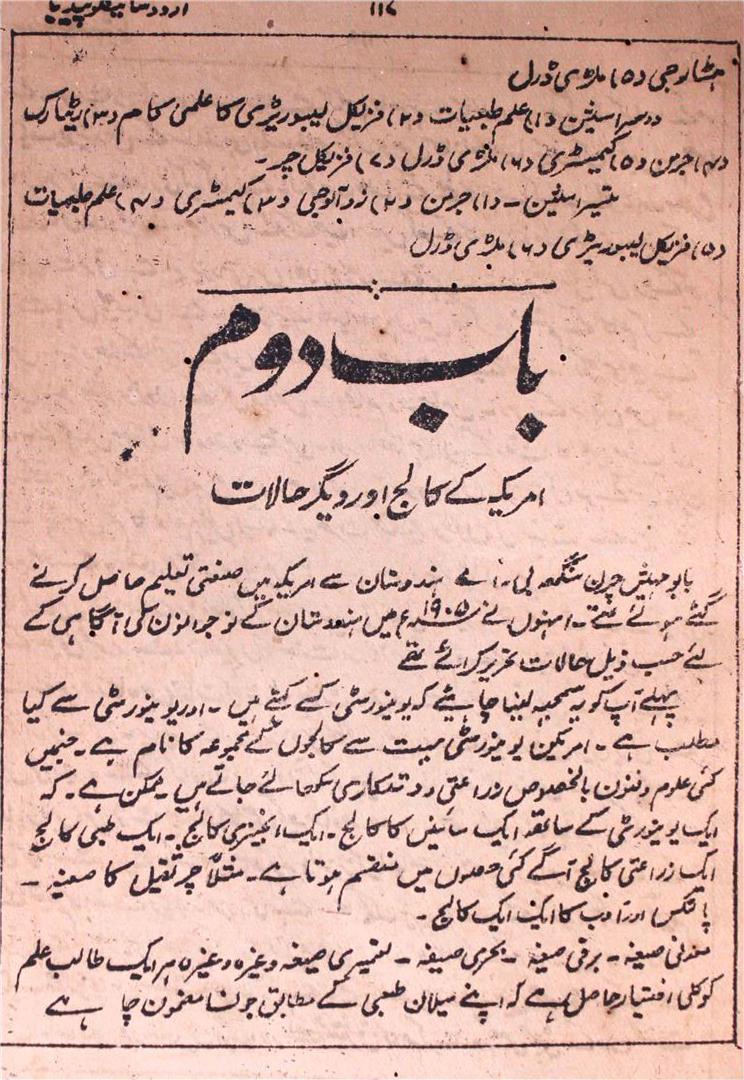 اردو سائیکلوپیڈیا
۱۱۷
ہسٹالوجی (۵) ملٹری ڈرل
دوسرا سشن (۱) علم طبعیات (۲) فزیکل لیبوریٹری کا علمی کام (۳)
(۴) جرمن (۵) کیمسٹری (۶) ملٹری ڈرل (۷) فزیکل
تیسرا سشن - (۱) جرمن (۲) زوآلوجی (۳) کیمسٹری (۴) علم طبعیات
(۵) فزیکل لیبوریٹری (۶) ملٹری ڈرل
باب دوم
امریکہ کے کالج اور دیگر حالات
بابو مہیش چرن سنگھ بی - اے ہندوستان سے امریکہ میں صنعتی تعلیم حاصل کرنے
گئے ہوئے تھے - انہوں نے ۱۹۰۵ء میں ہندوستان کے نوجوانوں کی آگاہی کے
لئے حسب ذیل حالات تحریر کرائے تھے
پہلے آپ کو یہ سمجھ لینا چاہئیے کہ یونیورسٹی کسے کہتے ہیں - اور یونیورسٹی سے کیا
مطلب ہے - امریکن یونیورسٹی بہت سے کالجوں کے مجموعہ کا نام ہے - جنمیں
کئی علوم و فنون بالخصوص زراعتی و دستکاری سکھائے جاتے ہیں ممکن ہے - کہ
ایک یونیورسٹی کے ساتھ ایک سائنس کا کالج - ایک انجینری کالج - ایک طبی کالج
ایک زراعتی کالج آگے کئی حصوں میں منقسم ہوتا ہے - مثلاً جر ثقیل کا صیغہ -
اور ادب کا ایک ایک کالج -
معدنی صیغہ - برقی صیغہ - بحری صیغہ - تعمیری صیغہ وغیرہ وغیرہ ہر ایک طالب علم
کو کلی اختیار حاصل ہے کہ اپنے میلان طبعی کے مطابق جونسا مضمون چاہے